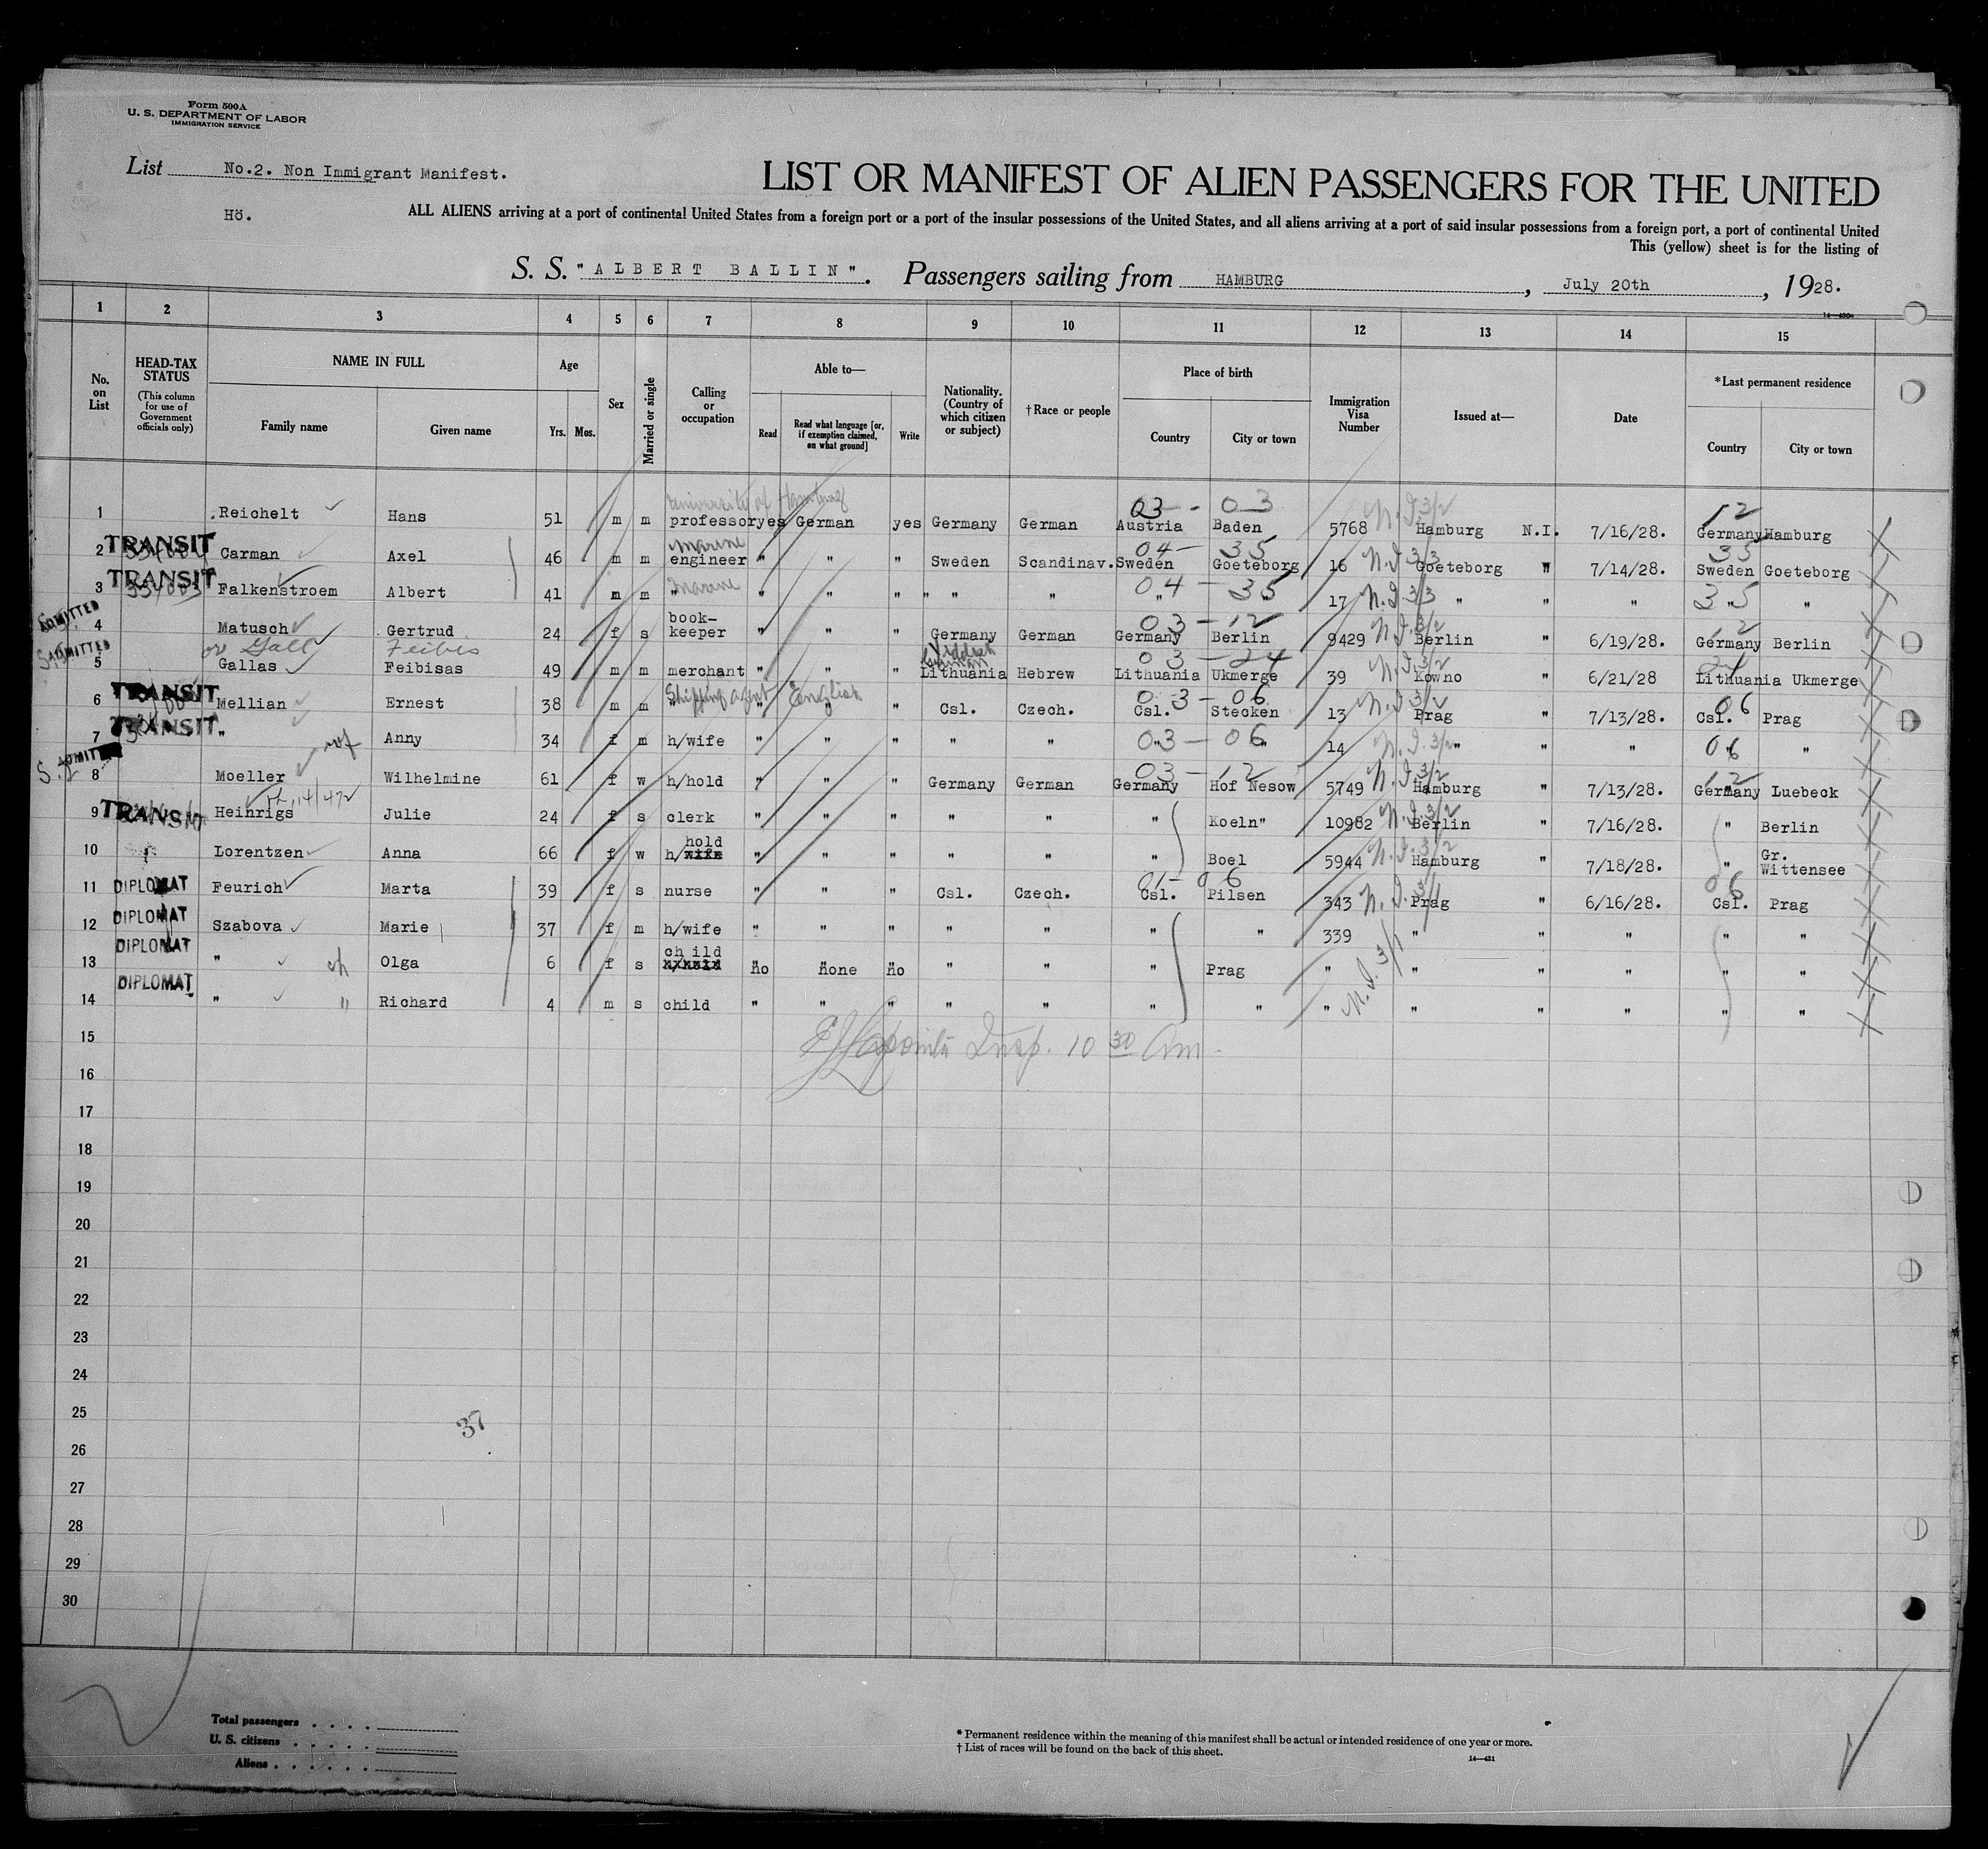 Form 500A
U. S. DEPARTMENT OF LABOR
IMMIGRATION SERVICE
List No.2. Non Immigrant Manifest.
Hö.
LIST OR MANIFEST OF ALIEN PASSENGERS FOR THE UNITED
ALL ALIENS arriving at a port of continental United States from a foreign port or a port of the insular possessions of the United States, and all aliens arriving at a port of said insular possessions from a foreign port, a port of continental United
This (yellow) sheet is for the listing of
S. S. "ALBERT BALLIN". Passengers sailing from HAMBURG, July 20th, 1928.
14—430a
1 2 3 4 5 6 7 8 9 10 11 12 13 14 15
No. on List
HEAD-TAX STATUS (This column for use of Government officials only)
NAME IN FULL
Family name Given name
Age
Yrs. Mos.
Sex
Married or single
Calling or occupation
Able to—
Read Read what language [or, if exemption claimed, on what ground] Write
Nationality. (Country of which citizen or subject)
†Race or people
Place of birth
Country City or town
Immigration Visa Number
Issued at—
Date
*Last permanent residence
Country City or town
University of Hamburg 03 - 03 N.I 3/2 12
1 Reichelt Hans 51 m m professor yes German yes Germany German Austria Baden 5768 Hamburg N.I. 7/16/28. Germany Hamburg
marine 04 - 35 N.I 3/3 35
2 TRANSIT Carman Axel 46 m m engineer " " " Sweden Scandinav. Sweden Goeteborg 16 Goeteborg " 7/14/28. Sweden Goeteborg
marine 04 - 35 N.I 3/3 35
3 TRANSIT Falkenstroem Albert 41 m m " " " " " " " " " 17 " " " " "
ADMITTED book- 03 - 12 N.I. 3/2 12
4 Matusch Gertrud 24 f s keeper " " " Germany German Germany Berlin 9429 Berlin " 6/19/28. Germany Berlin
ADMITTED or Gall Feibis Yiddish German 03 - 24 N.I. 3/2 24
5 Gallas Feibisas 49 m m merchant " " " Lithuania Hebrew Lithuania Ukmerge 39 Kowno " 6/21/28 Lithuania Ukmerge
Shipping agent English 03 - 06 N.I. 3/2 06
6 TRANSIT Mellian Ernest 38 m m " " " " Csl. Czech. Csl. Stecken 13 Prag " 7/13/28. Csl. Prag
03 - 06 N.I. 3/2 06
7 TRANSIT " Anny 34 f m h/wife " " " " " " " 14 " " " " "
ADMITTED 03 - 12 N.I. 3/2 12
8 Moeller Wilhelmine 61 f w h/hold " " " Germany German Germany Hof Nesow 5749 Hamburg " 7/13/28. Germany Luebeck
N.I. 3/2
9 TRANSIT Heinrigs Julie 24 f s clerk " " " " " " Koeln" 10982 Berlin " 7/16/28. " Berlin
hold N.I. 3/2 Gr.
10 Lorentzen Anna 66 f w h/wife " " " " " " Boel 5944 Hamburg " 7/18/28. " Wittensee
01 - 06 N.I. 3/1 06
11 DIPLOMAT Feurich Marta 39 f s nurse " " " Csl. Czech. Csl. Pilsen 343 Prag " 6/16/28. Csl. Prag
12 DIPLOMAT Szabova Marie 37 f m h/wife " " " " " " " 339 " " " " "
ch ild N.I. 3/1
13 DIPLOMAT " ch Olga 6 f s no none no " " " Prag " " " " " "
14 DIPLOMAT " " Richard 4 m s child " " " " " " " " " " " " "
15 Insp. 10 30 am
16
17
18
19
20
21
22
23
24
25
37
26
27
28
29
30
Total passengers . . . .
U. S. citizens . . . . .
Aliens . . . . . .
* Permanent residence within the meaning of this manifest shall be actual or intended residence of one year or more.
† List of races will be found on the back of this sheet.
14—431